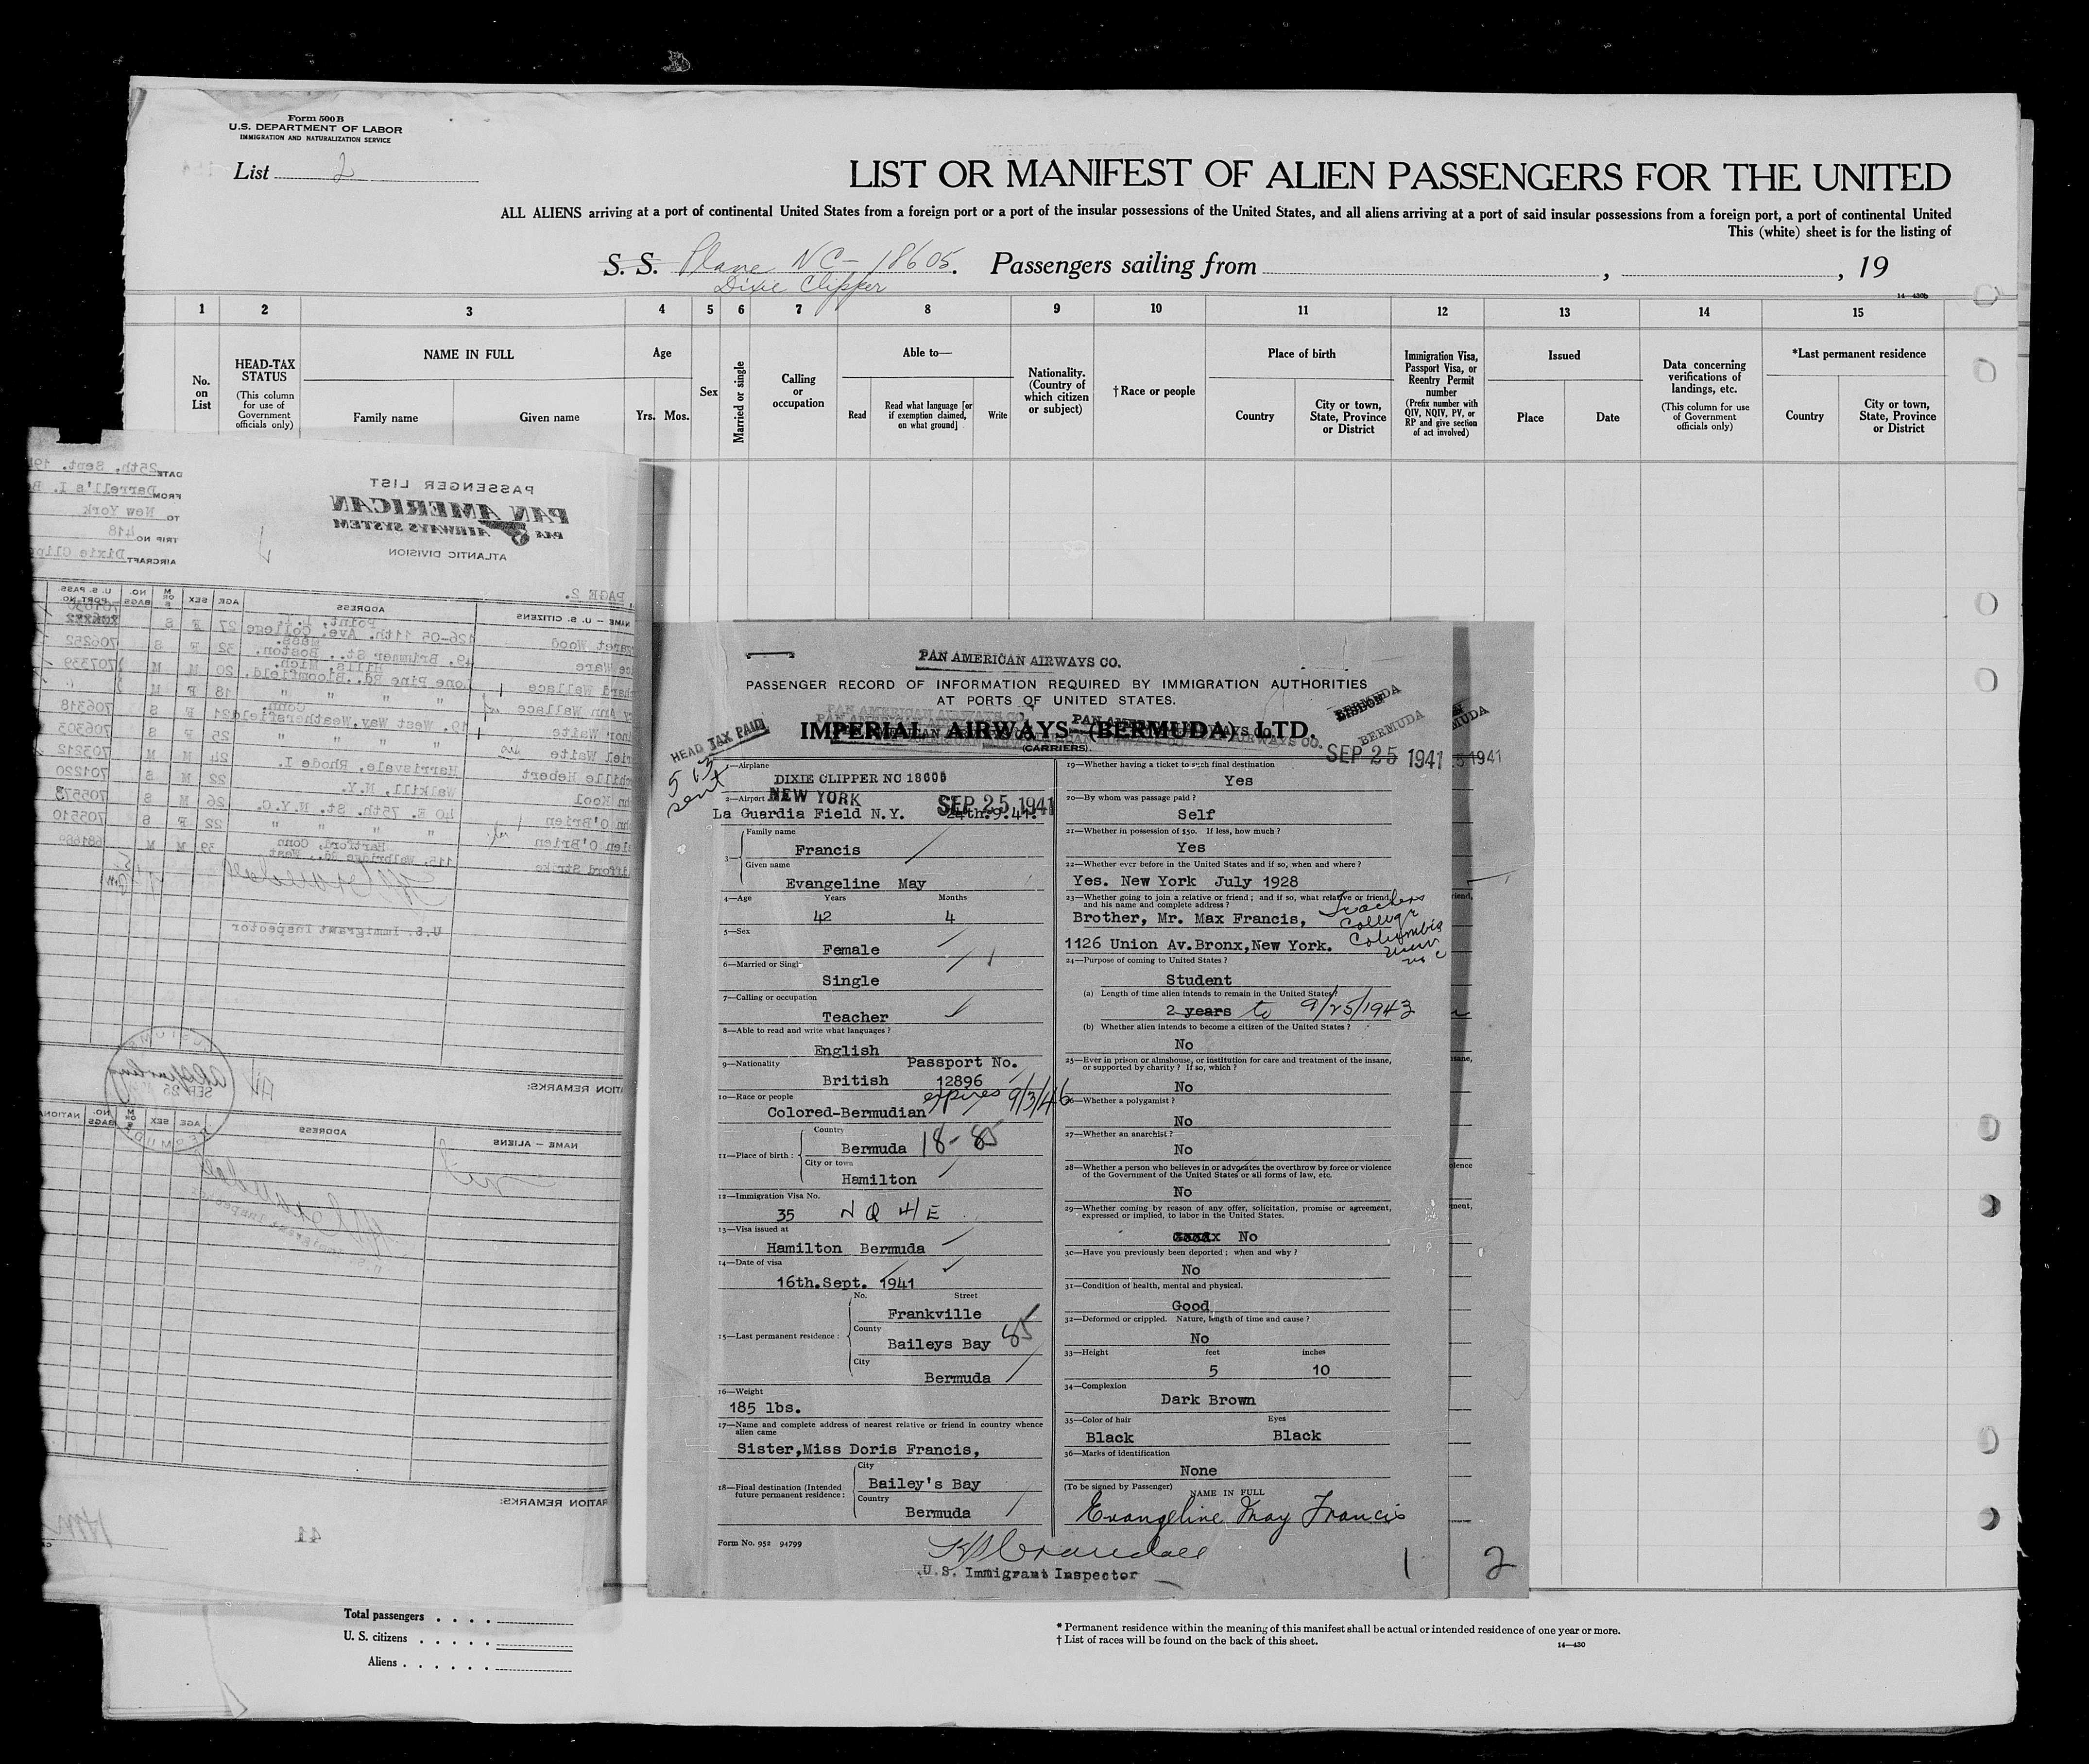 Form 500 B
U.S. DEPARTMENT OF LABOR
IMMIGRATION AND NATURALIZATION SERVICE
List 2
LIST OR MANIFEST OF ALIEN PASSENGERS FOR THE UNITED
ALL ALIENS arriving at a port of continental United States from a foreign port or a port of the insular possessions of the United States, and all aliens arriving at a port of said insular possessions from a foreign port, a port of continental United
This (white) sheet is for the listing of
S. S. Plane NC- 18605. Passengers sailing from , , 19
Dixie Clipper
14-430b
1 2 3 4 5 6 7 8 9 10 11 12 13 14 15
No. on List
HEAD-TAX STATUS
(This column for use of Government officials only)
NAME IN FULL
Family name Given name
Age
Yrs. Mos.
Sex
Married or single
Calling or occupation
Able to—
Read
Read what language [or if exemption claimed, on what ground]
Write
Nationality. (Country of which citizen or subject)
†Race or people
Place of birth
Country
City or town, State, Province or District
Immigration Visa, Passport Visa, or Reentry Permit number
(Prefix number with QIV, NQIV, PV, or RP and give section of act involved)
Issued
Place Date
Data concerning verifications of landings, etc.
(This column for use of Government officials only)
*Last permanent residence
Country
City or town, State, Province or District
DATE 25th. Sept. 19
FROM Darrell's I. B
TO New York
TRIP NO. 418
AIRCRAFT Dixie Clip
PASSENGER LIST
PAN AMERICAN
PAA AIRWAYS SYSTEM
ATLANTIC DIVISION
PAGE 2.
NAME — U.S. CITIZENS ADDRESS AGE SEX M OR S NO. BAGS U.S. PASS-PORT NO.
Point, L.I.
aret Wood 126-05 11th. Ave. College 27 F S
Mass.
ce Ware 49. Brimmer St., Boston. 32 F S 706252
Hills, Mich.
hard Wallace Lone Pine Rd., Bloomfield, 20 M M 707339
y Ann Wallace " " " " 18 F M
Conn.
nor Waite 19. West Way, Weathersfield 21 F S 706318
riel Waite " " " " 25 F S 706303
chille Hebert Harrisvale, Rhode I. 24 M M 703212
hn Kool Walkill, N.Y. 22 M S 701220
hn O'Brien 40 E. 75th. St. N.Y.C. 26 M S 705573
len O'Brien " " " " 22 F S 705510
Hartford, Conn
ifford Strike 115, Walbridge Rd., West 39 M M
U.S. Immigrant Inspector
SEP 25
BERMUDA
ATION REMARKS:
NAME — ALIENS ADDRESS AGE SEX M OR S NO. BAGS NATION
ATION REMARKS:
41
Total passengers . . . .
U. S. citizens . . . . .
Aliens . . . . . .
PAN AMERICAN AIRWAYS CO.
PASSENGER RECORD OF INFORMATION REQUIRED BY IMMIGRATION AUTHORITIES
AT PORTS OF UNITED STATES.
IMPERIAL AIRWAYS (BERMUDA) LTD.
(CARRIERS).
HEAD TAX PAID
sent
LISBON
BERMUDA
BERMUDA
SEP 25 1941
1—Airplane
DIXIE CLIPPER NC 18605
2—Airport NEW YORK SEP 25 1941
La Guardia Field N.Y. 24th.9.41.
3— Family name
Francis
Given name
Evangeline May
4—Age Years Months
42 4
5—Sex
Female
6—Married or Singl
Single
7—Calling or occupation
Teacher
8—Able to read and write what languages ?
English
9—Nationality Passport No.
British 12896
expires 9/3/46
10—Race or people
Colored-Bermudian
11—Place of birth : Country
Bermuda 18-85
City or town
Hamilton
12—Immigration Visa No.
35 N Q 4/E
13—Visa issued at
Hamilton Bermuda
14—Date of visa
16th.Sept. 1941
15—Last permanent residence : No. Street
Frankville
County
Baileys Bay 85
City
Bermuda
16—Weight
185 lbs.
17—Name and complete address of nearest relative or friend in country whence alien came
Sister,Miss Doris Francis,
18—Final destination (Intended future permanent residence : City
Bailey's Bay
Country
Bermuda
Form No. 952 94799
19—Whether having a ticket to such final destination
Yes
20—By whom was passage paid ?
Self
21—Whether in possession of $50. If less, how much ?
Yes
22—Whether ever before in the United States and if so, when and where ?
Yes. New York July 1928
23—Whether going to join a relative or friend ; and if so, what relative or friend, and his name and complete address ?
Brother, Mr. Max Francis,
1126 Union Av.Bronx,New York.
Teachers
College
Columbia
24—Purpose of coming to United States ?
Student
(a) Length of time alien intends to remain in the United States?
2 years to 9/25/1943
(b) Whether alien intends to become a citizen of the United States ?
No
25—Ever in prison or almshouse, or institution for care and treatment of the insane, or supported by charity ? If so, which ?
No
26—Whether a polygamist ?
No
27—Whether an anarchist ?
No
28—Whether a person who believes in or advocates the overthrow by force or violence of the Government of the United States or all forms of law, etc.
No
29—Whether coming by reason of any offer, solicitation, promise or agreement, expressed or implied, to labor in the United States.
No
30—Have you previously been deported ; when and why ?
No
31—Condition of health, mental and physical.
Good
32—Deformed or crippled. Nature, length of time and cause ?
No
33—Height feet inches
5 10
34—Complexion
Dark Brown
35—Color of hair Eyes
Black Black
36—Marks of identification
None
(To be signed by Passenger) NAME IN FULL
Evangeline May Francis
U.S. Immigrant Inspector
1
2
* Permanent residence within the meaning of this manifest shall be actual or intended residence of one year or more.
† List of races will be found on the back of this sheet.
14—430